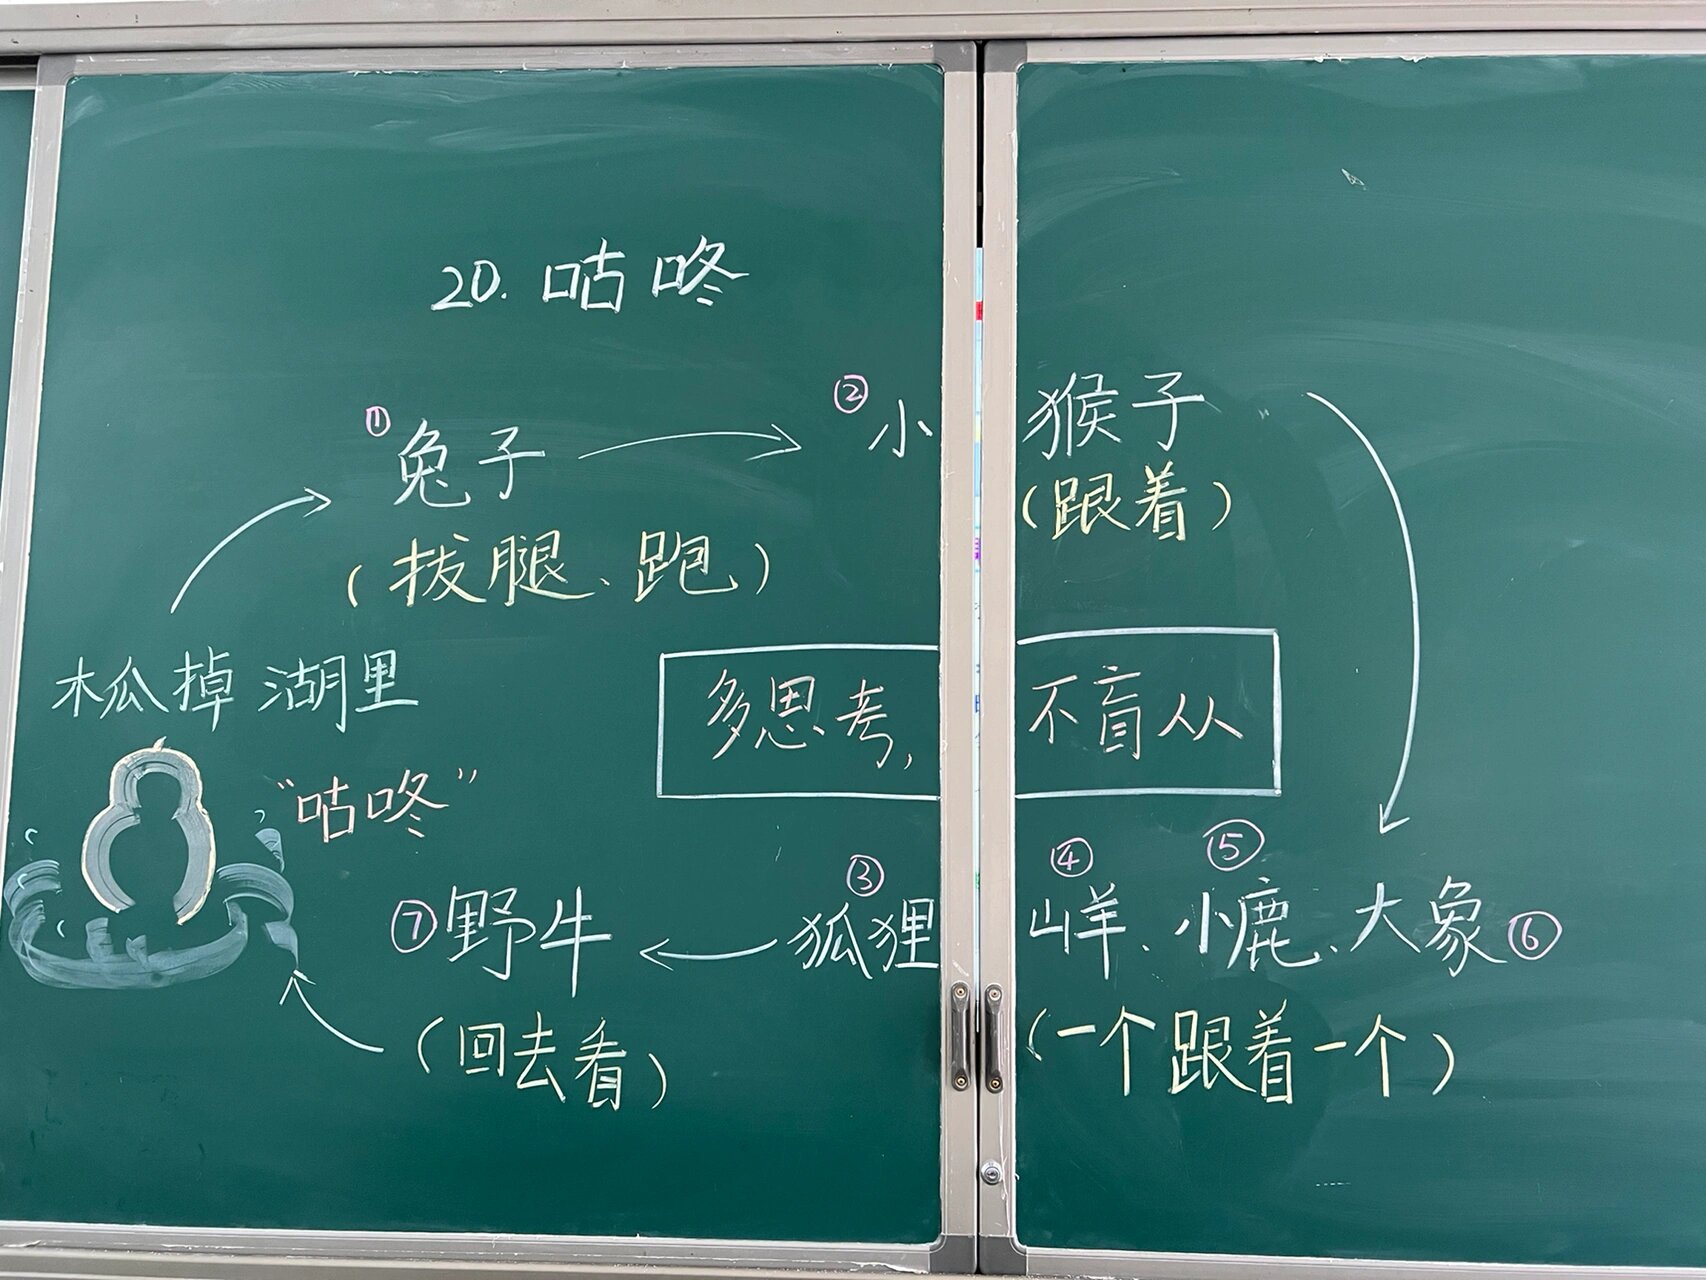 20.咕咚
① 兔子 ② 小猴子
(跟着)
(拔腿、跑)
木瓜掉湖里
多思考,不盲从
"咕咚"
⑦野牛 ③狐狸 ④山羊、⑤小鹿、大象⑥
(回去看) (一个跟着一个)